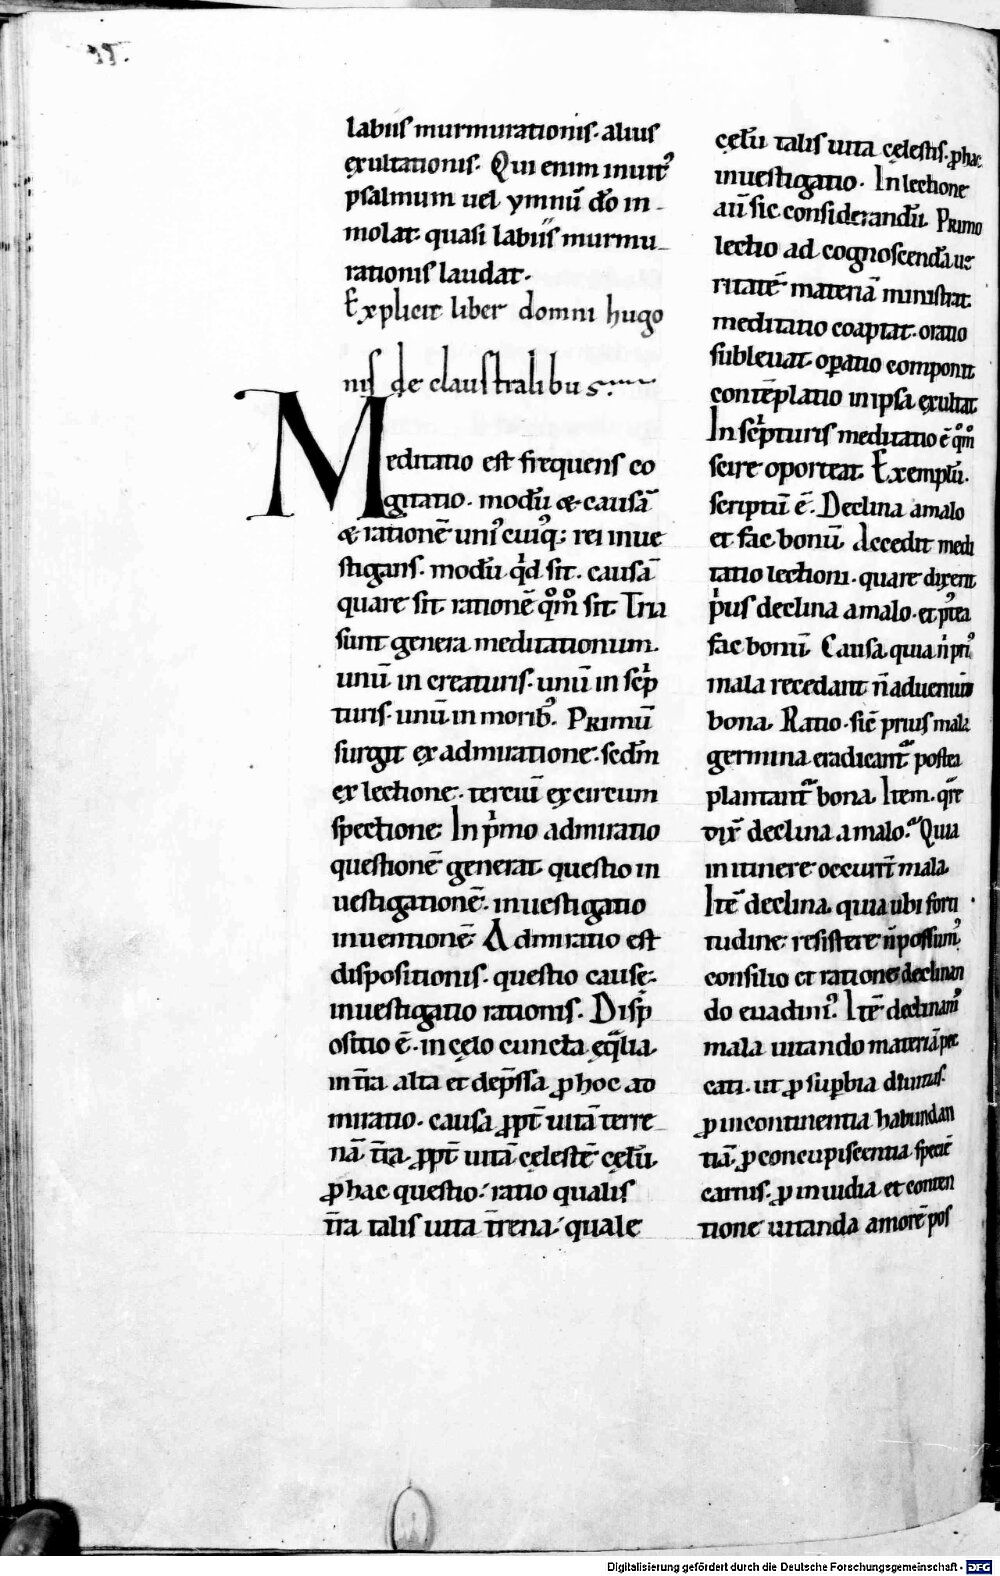 labiis murmurationis. alius
exultationis. Qui enim inuitꝰ
psalmum uel ymnū dō in-
molat. quasi labiis murmu-
rationis laudat.
Explicit liber domni hugo
nis de claustralibus
Meditatio est frequens co
gitatio. modū & causā
& rationē uniꝰ cuiꝰq; rei inue
stigans. modū qͥd sit. causā
quare sit. rationē qͦmͦ sit. Tria
sunt genera meditationum.
unū in creaturis. unū in scͥp
turis. unū in moribꝰ. Primū
surgit ex admiratione. scdm̄
ex lectione. terciū ex circum
spectione. In pͥmo admiratio
questionē generat. questio in
uestigationē. inuestigatio
inuentionē. Admiratio est
dispositionis. questio cause.
inuestigatio rationis. Disp
ositio ē. in cęlo cuncta eqͣlia.
in t̄ra alta et dep̄ssa. ꝓ hoc ad
miratio. causa ꝓpt̄ uitā terre
nā t̄ra. ꝓpt̄ uitā cęlestē cęlū.
ꝓ hac questio. ratio qualis
t̄ra talis uita t̄rena. quale
cęlū talis uita cęlestis. ꝓ hac
inuestigatio. In lectione
aū sic considerandū. Primo
lectio ad cognoscendā ue
ritatē materiā ministrat.
meditatio coaptat. oratio
subleuat. oꝑatio componit
contēplatio in ipsa exultat.
In scͥpturis meditatio ē qͦmͦ
scire oporteat. Exemplū.
scriptū ē. Declina a malo
et fac bonū. Accedit medi
tatio lectioni. quare dixerit
pͥus declina a malo. et pꝰtea
fac bonū. Causa. quia n̄ pͥꝰ
mala recedant n̄ adueniūt
bona. Ratio. sic̄ prius mala
germina eradicant᷑ postea
plantant᷑ bona. Item. qͣre
dix̄ declina a malo. Quia
in itinere occurr̄t mala.
Itē declina. quia ubi forti
tudine resistere n̄ possumꝰ.
consilio et ratione declinan
do euadimꝰ. Itē declinamꝰ
mala uitando materiā pec
cati. ut ꝓ suꝑbia diuitias.
ꝓ incontinentia habundan
tiā. ꝓ concupiscentia speciē
carnis. ꝓ inuidia et conten
tione uitanda amorē pos
Digitalisierung gefördert durch die Deutsche Forschungsgemeinschaft - DFG